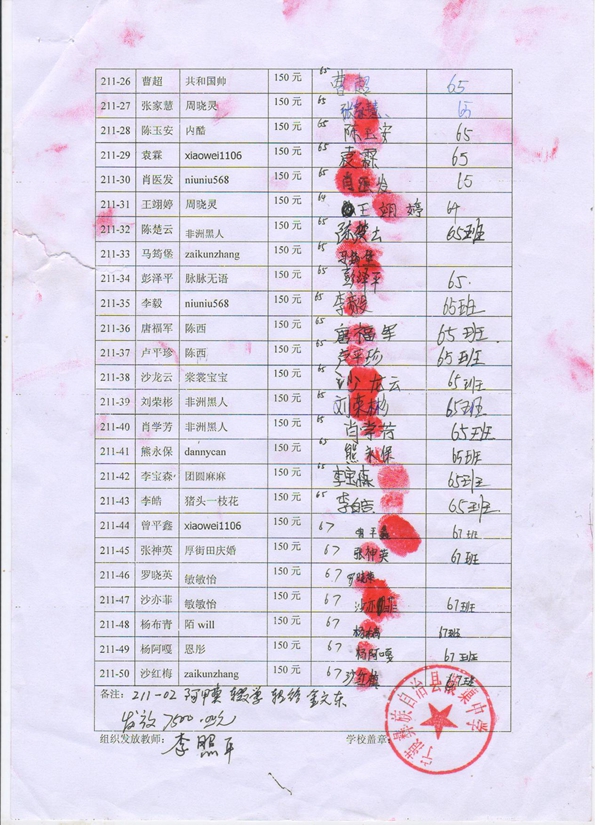 211-26 曹超 共和国帅 150 元 65 曹超 65
211-27 张家慧 周晓灵 150 元 65 张家慧 65
211-28 陈玉安 内酷 150 元 65 陈玉安 65
211-29 袁霖 xiaowei1106 150 元 65 袁霖 65
211-30 肖医发 niuniu568 150 元 65 肖医发 15
211-31 王翊婷 周晓灵 150 元 64 王翊婷 64
211-32 陈楚云 非洲黑人 150 元 65 陈楚云 65班
211-33 马筠堡 zaikunzhang 150 元 65
211-34 彭泽平 脉脉无语 150 元 65 彭泽平 65.
211-35 李毅 niuniu568 150 元 65 李毅 65班
211-36 唐福军 陈西 150 元 65 唐福军 65班
211-37 卢平珍 陈西 150 元 65 卢平珍 65班
211-38 沙龙云 棠裳宝宝 150 元 65 沙龙云 65班
211-39 刘荣彬 非洲黑人 150 元 65 刘荣彬 65班
211-40 肖学芳 非洲黑人 150 元 65 肖学芳 65班
211-41 熊永保 dannycan 150 元 65 熊永保 65班
211-42 李宝森 团圆麻麻 150 元 65 李宝森 65班
211-43 李皓 猪头一枝花 150 元 65 李皓 65班
211-44 曾平鑫 xiaowei1106 150 元 67 曾平鑫 67班
211-45 张神英 厚街田庆婚 150 元 67 张神英 67班
211-46 罗晓英 敏敏怡 150 元 67 罗晓英
211-47 沙亦菲 敏敏怡 150 元 67 沙亦菲 67班
211-48 杨布青 陌 will 150 元 67 杨布青 67班
211-49 杨阿嘎 恩彤 150 元 67 杨阿嘎 67班
211-50 沙红梅 zaikunzhang 150 元 67 沙红梅 67班
备注: 211-02 阿甲 辍学 转给金文东
发放 7500.00元
组织发放教师: 李照平 学校盖章:
宁蒗彝族自治县 中学